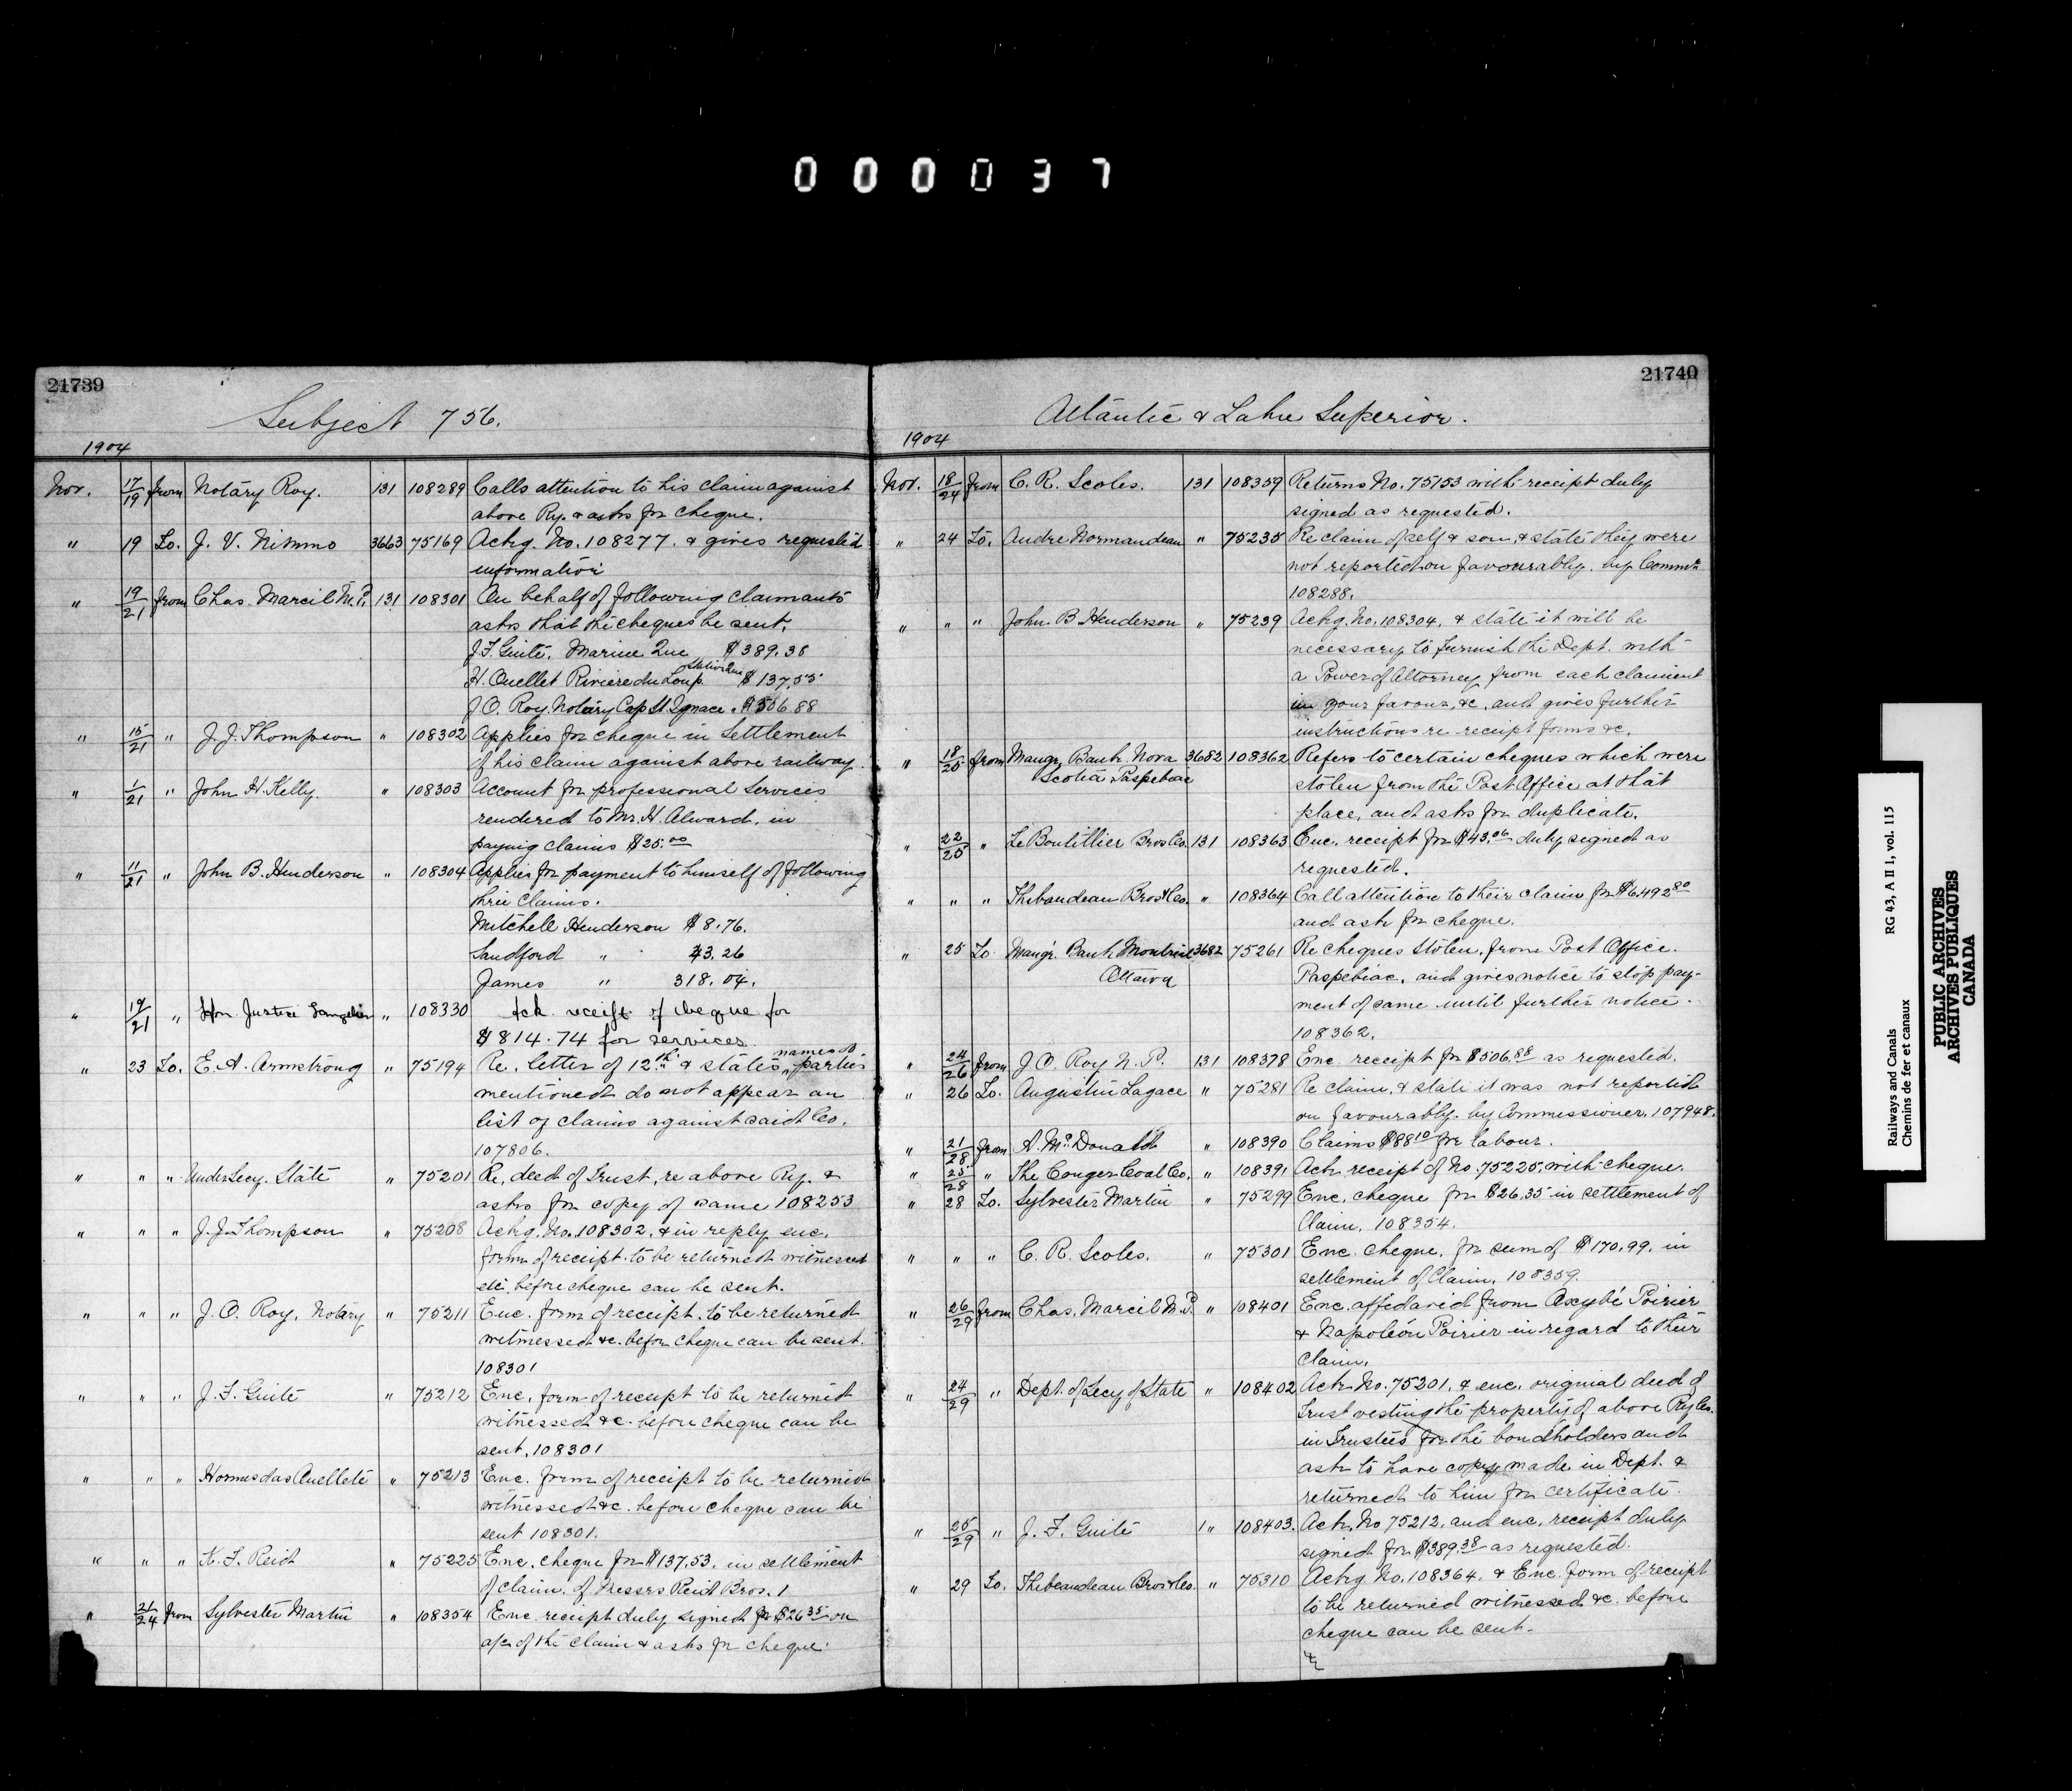 000037
21739
Subject 756.
1904
Nov. 17/19 from Notary Roy. 131 108289 Calls attention to his claim against
above Ry. & asks for cheque.
" 19 To. J. V. Nimmo 3663 75169 Ackg. No. 108277. & gives requested
information
" 19/21 from Chas. Marcil M.P. 131 108301 On behalf of following claimants
asks that the cheques be sent.
J.F. Guité. Marie Que $389.38
Station Que
H. Ouellet Riviere du Loup. $137.53
J.O. Roy Notary Cap St Ignace " $506.88
" 15/21 " J.J. Thompson " 108302 Applies for cheque in Settlement
of his claim against above railway.
" 1/21 " John H. Kelly. " 108303 Account for professional services
rendered to Mr. H. Alward, in
paying claims $25.00
" 11/21 " John B. Henderson " 108304 Applies for payment to himself of following
three claims.
Mitchell Henderson $8.76.
Sandford " 43.26
James " 318.04.
" 19/21 " Hon. Justice Langelier " 108330 Ack. receipt of cheque for
$814.74 for services.
names of
" 23 To. E. A. Armstrong " 75194 Re. letter of 12th & states parties
mentioned do not appear on
list of claims against said Co.
107806.
" " " Under Secy. State " 75201 Re, deed of Trust, re above Ry. &
asks for copy of same 108253
" " " J.J. Thompson " 75208 Ackg. No. 108302. & in reply enc.
form of receipt to be returned witnessed
etc. before cheque can be sent.
" " " J. O. Roy, Notary " 75211 Enc. form of receipt. to be returned
witnessed &c. before cheque can be sent.
108301
" " " J. F. Guité " 75212 Enc. form of receipt to be returned
witnessed &c. before cheque can be
sent. 108301
" " " Hormisdas Ouellete " 75213 Enc. form of receipt to be returned
witnessed &c. before cheque can be
sent 108301.
" " " K. F. Reid " 75225 Enc. cheque for $137.53. in settlement
of claim. of Messrs Reid Bros.
" 21/24 from Sylvester Martin " 108354 Enc. receipt duly signed for $26.35 on
a/c of the claim & asks for cheque.
21740
Atlantic & Lake Superior.
1904
Nov. 18/24 from C. R. Scoles. 131 108359 Returns No. 75153 with receipt duly
signed as requested.
" 24 To. Andre Normandeau " 75235 Re claim of self & son, & state they were
not reported on favourably. by Commr.
108288.
" " " John. B Henderson " 75239 Ackg. No. 108304. & state it will be
necessary to furnish the Dept. with
a Power of Attorney from each claimant
in your favour, &c. and gives further
instructions re receipt forms &c.
" 18/25 from Mangr. Bank Nova 3682 108362 Refers to certain cheques which were
Scotia Paspebiac stolen from the Post Office at that
place, and asks for duplicate.
" 22/25 " Le Boutillier Bros Co. 131 108363 Enc. receipt for $43.06 duly signed as
requested.
" " " Thibaudeau Bros & Co. " 108364 Call attention to their claim for $6492.80
and ask for cheque.
" 25 To. Mangr. Bank Montreal 3682 75261 Re cheques stolen, from Post Office.
Ottawa Paspebiac, and gives notice to stop pay-
ment of same until further notice.
108362.
" 24/26 from J. O. Roy N.P. 131 108378 Enc receipt for $506.88 as requested.
" 26 To. Augustin Lagace " 75281 Re claim, & state it was not reported
on favourably. by Commissioner. 107948.
" 21/28 from A. McDonald " 108390 Claims $88.10 for labour.
" 25/28 " The Conger Coal Co. " 108391 Ack receipt of No. 75225. with cheque.
" 28 To. Sylvester Martin " 75299 Enc. cheque for $26.35 in settlement of
Claim. 108354.
" " " C. R. Scoles. " 75301 Enc. cheque. for sum of $170.99. in
settlement of Claim. 108359.
" 26/29 from Chas. Marcil M.P. " 108401 Enc. affedavid from Poirier
& Napoléon Poirier in regard to their
claim.
" 24/29 " Dept. of Secy of State " 108402 Ack No. 75201. & enc. original deed of
Trust vesting the property of above Ry Co.
in Trustees for the bondholders and
ask to have copy made in Dept. &
returned to him for certificate.
" 25/29 " J. F. Guité " 108403. Ack. No 75212. and enc. receipt duly
signed for $389.38 as requested.
" 29 To. Thibeaudeau Bros & Co. " 75310 Ackg. No. 108364. & Enc. form of receipt
to be returned witnessed &c. before
cheque can be sent.
Railways and Canals RG 43, A II 1, vol. 115
Chemins de fer et canaux
PUBLIC ARCHIVES
ARCHIVES PUBLIQUES
CANADA